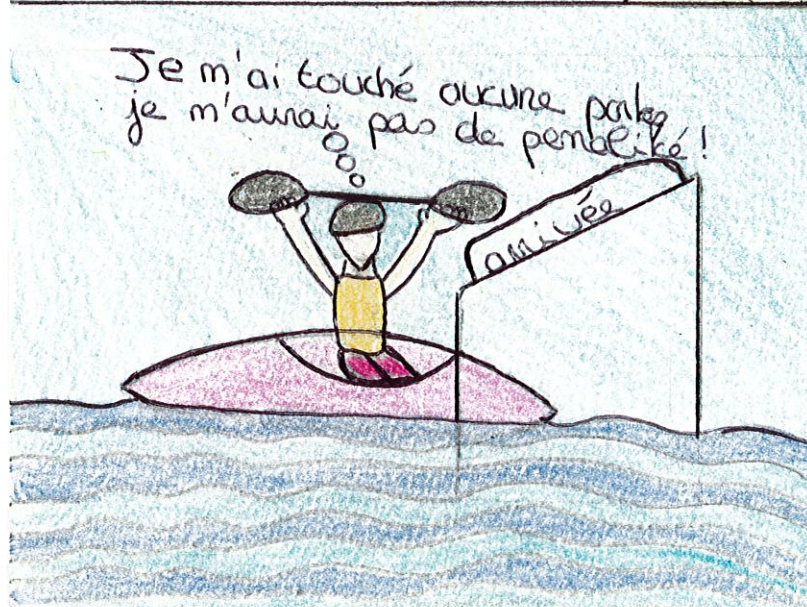 Je m'ai touché aucune porte
je m'aurai pas de penalité !
arrivée